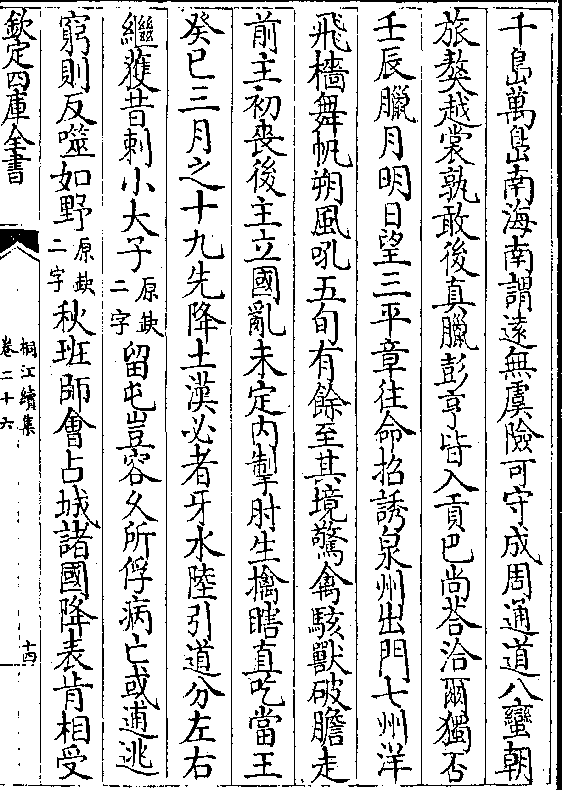 千島萬島南海南謂遠無虞險可守成周通道八蠻朝
旅獒越裳孰敢後真臘彭亨皆入貢巴尚荅洽爾獨否
壬辰臘月明日望三平章往命招誘泉州出門七州洋
飛檣舞帆朔風吼五旬有餘至其境驚禽駭獸破膽走
前主初喪後主立國亂未定内掣肘生擒瞎直吃當王
癸巳三月之十九先降土漢必者牙水陸引道分左右
繼㢮昔剌小大子原缺二字留屯豈容久所俘病亡或逋逃
窮則反噬如野原缺二字秋班師會占城諸國降表肯相受
欽定四庫全書
桐江續集
卷二十六
十四